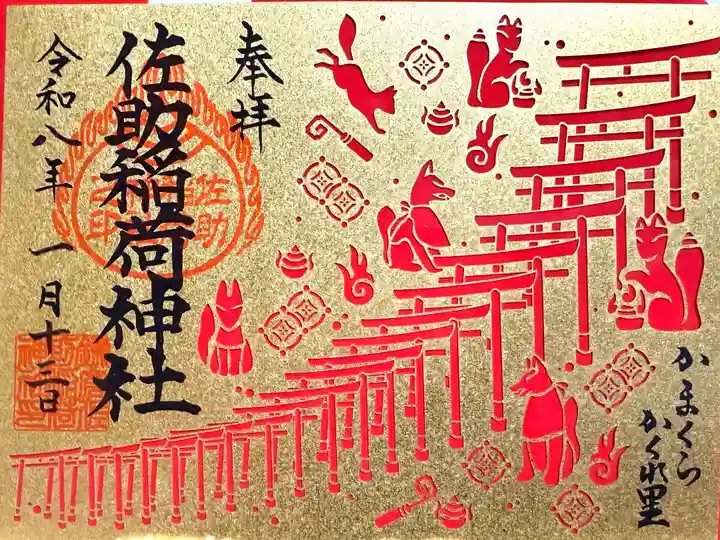 奉拝
佐助稲荷神社
佐助
令和八年 一月十三日
かまくら
かくれ里